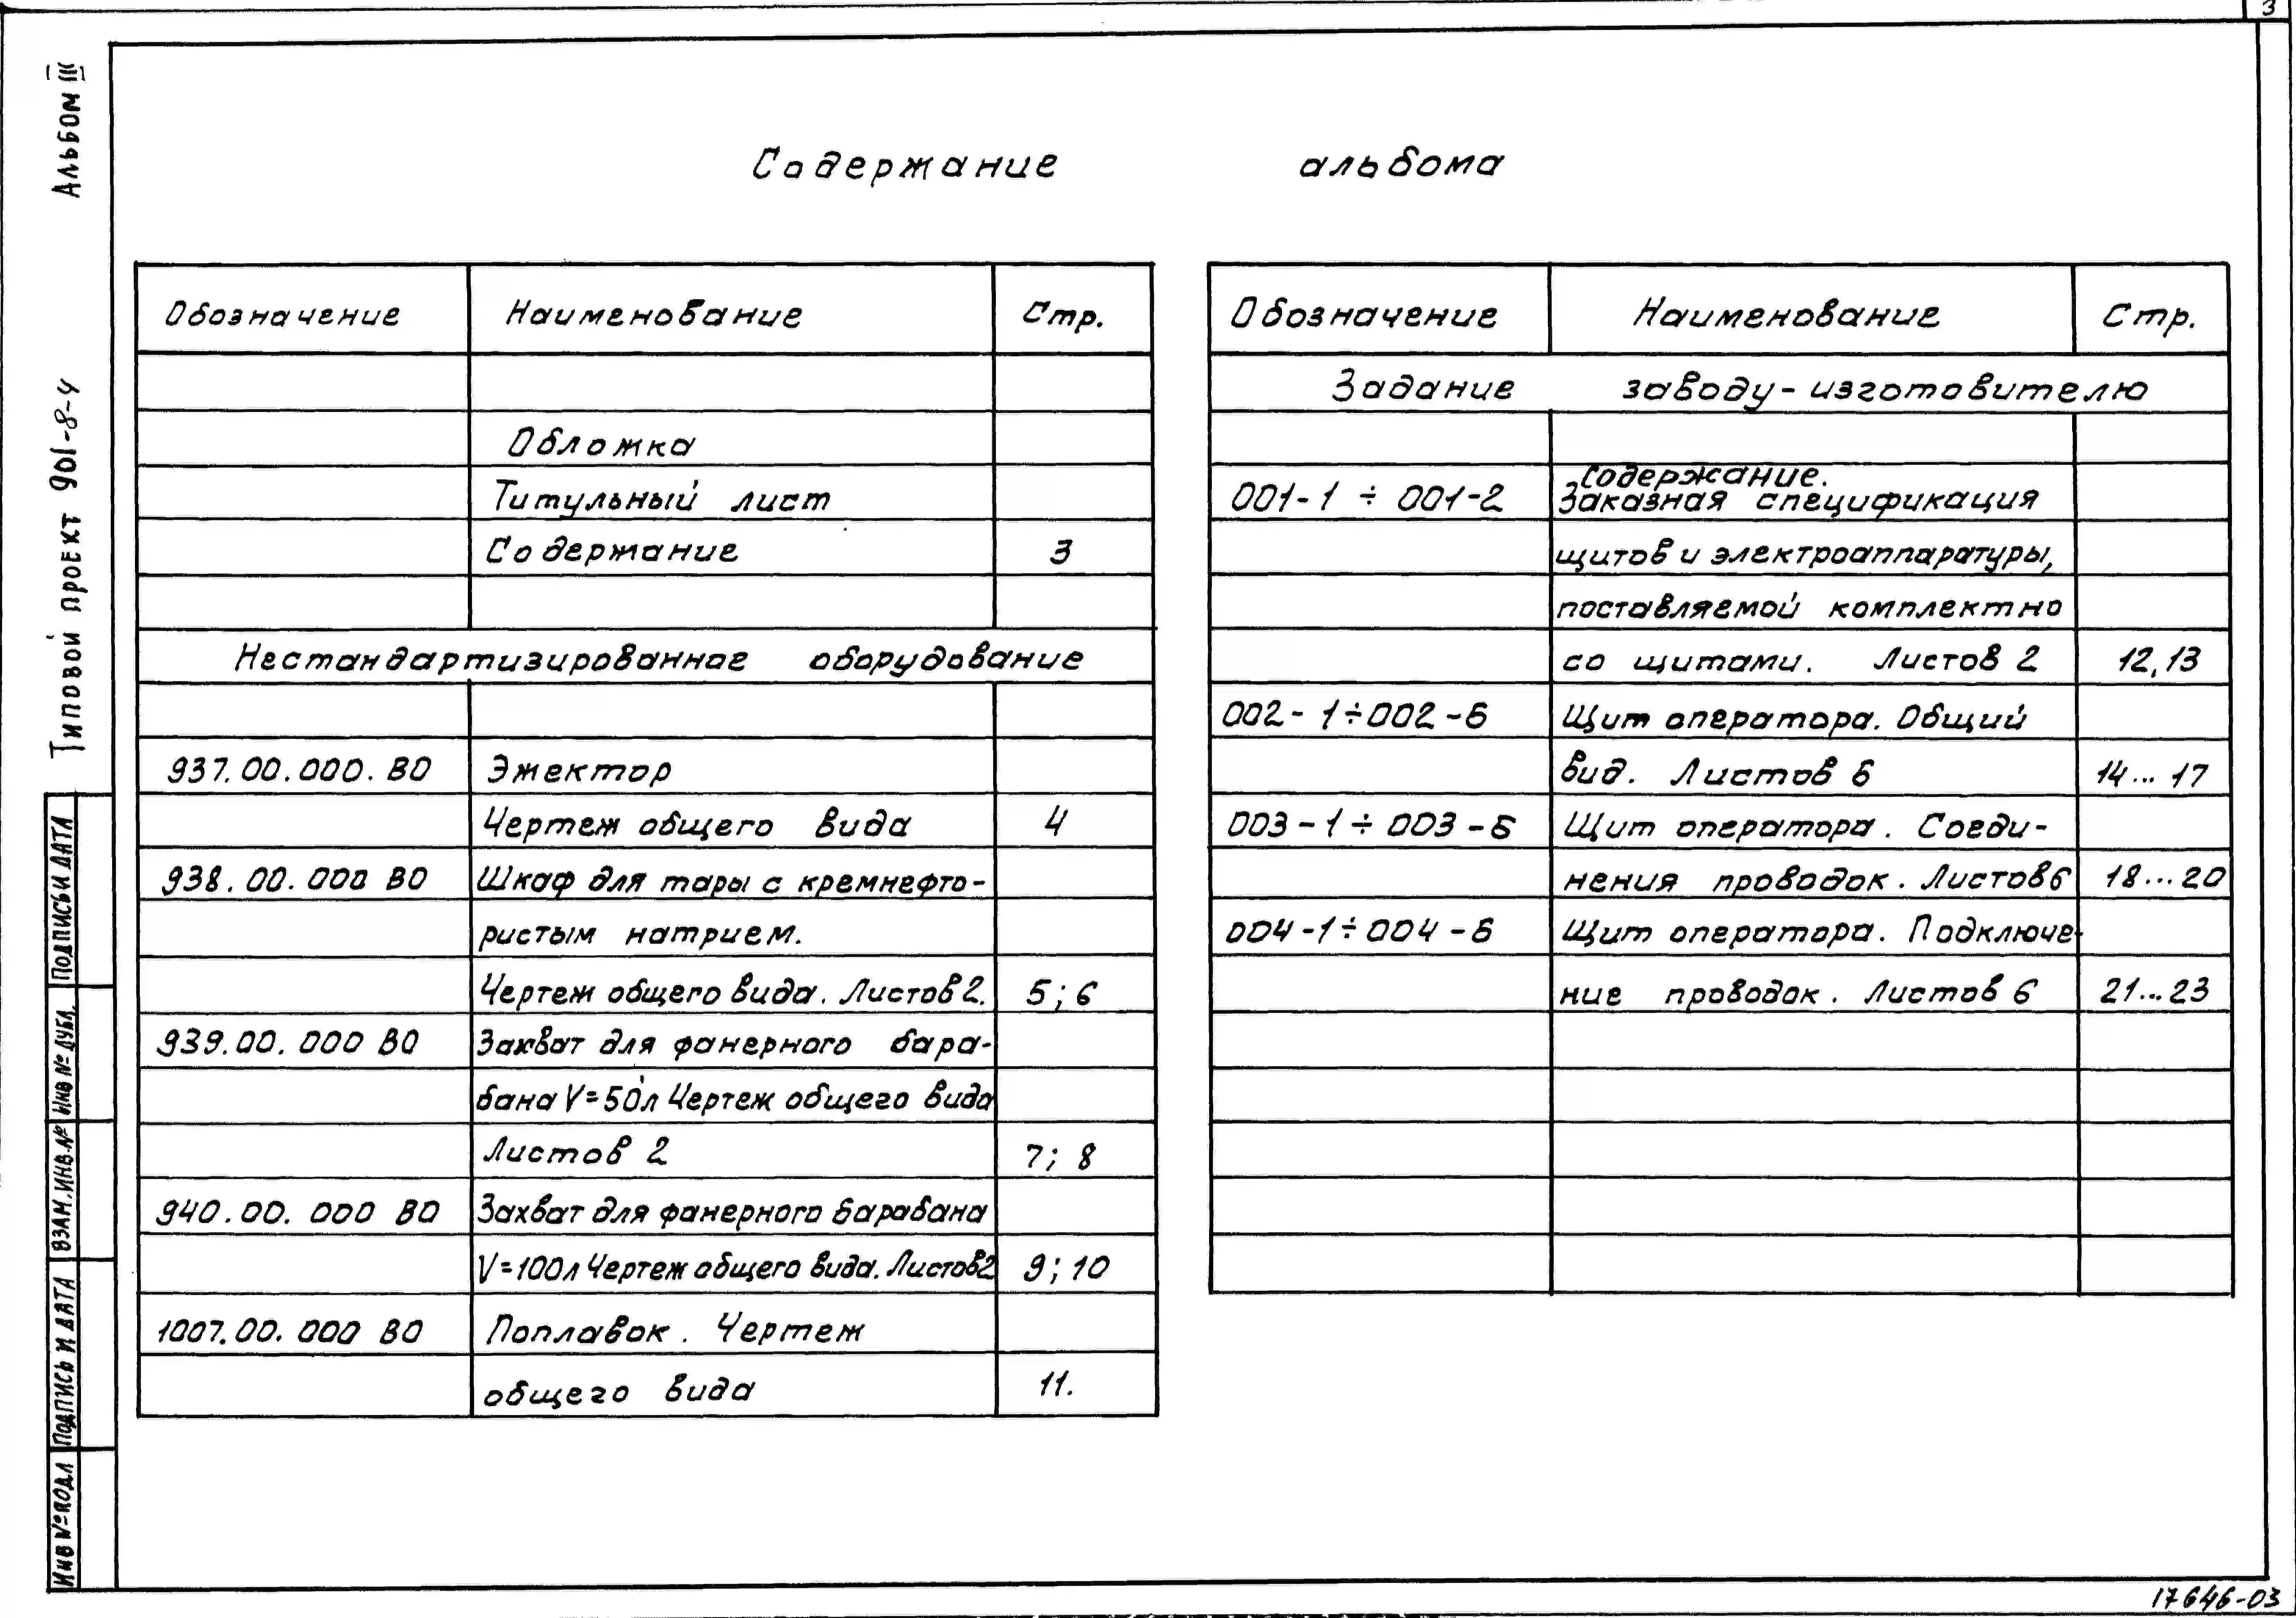 3
Альбом III
Типовой проект 901-8-4
Содержание альбома
Обозначение Наименование Стр.
Обложка
Титульный лист
Содержание 3
Нестандартизированное оборудование
937.00.000. ВО Эжектор
Чертеж общего вида 4
938.00.000 ВО Шкаф для тары с кремнефто-
ристым натрием.
Чертеж общего вида. Листов 2. 5; 6
939.00.000 ВО Захват для фанерного бара-
бана V=50л Чертеж общего вида
Листов 2 7; 8
940.00.000 ВО Захват для фанерного барабана
V=100л Чертеж общего вида. Листов 2 9; 10
1007.00.000 ВО Поплавок. Чертеж
общего вида 11.
Обозначение Наименование Стр.
Задание заводу-изготовителю
Содержание.
001-1 ÷ 001-2 Заказная спецификация
щитов и электроаппаратуры,
поставляемой комплектно
со щитами. Листов 2 12,13
002-1÷002-6 Щит оператора. Общий
вид. Листов 6 14... 17
003-1÷003-6 Щит оператора. Соеди-
нения проводок. Листов 6 18...20
004-1÷004-6 Щит оператора. Подключе-
ние проводок. Листов 6 21...23
Подпись и дата
Инв № дубл.
Взам. инв. №
Подпись и дата
Инв № подл
17646-03